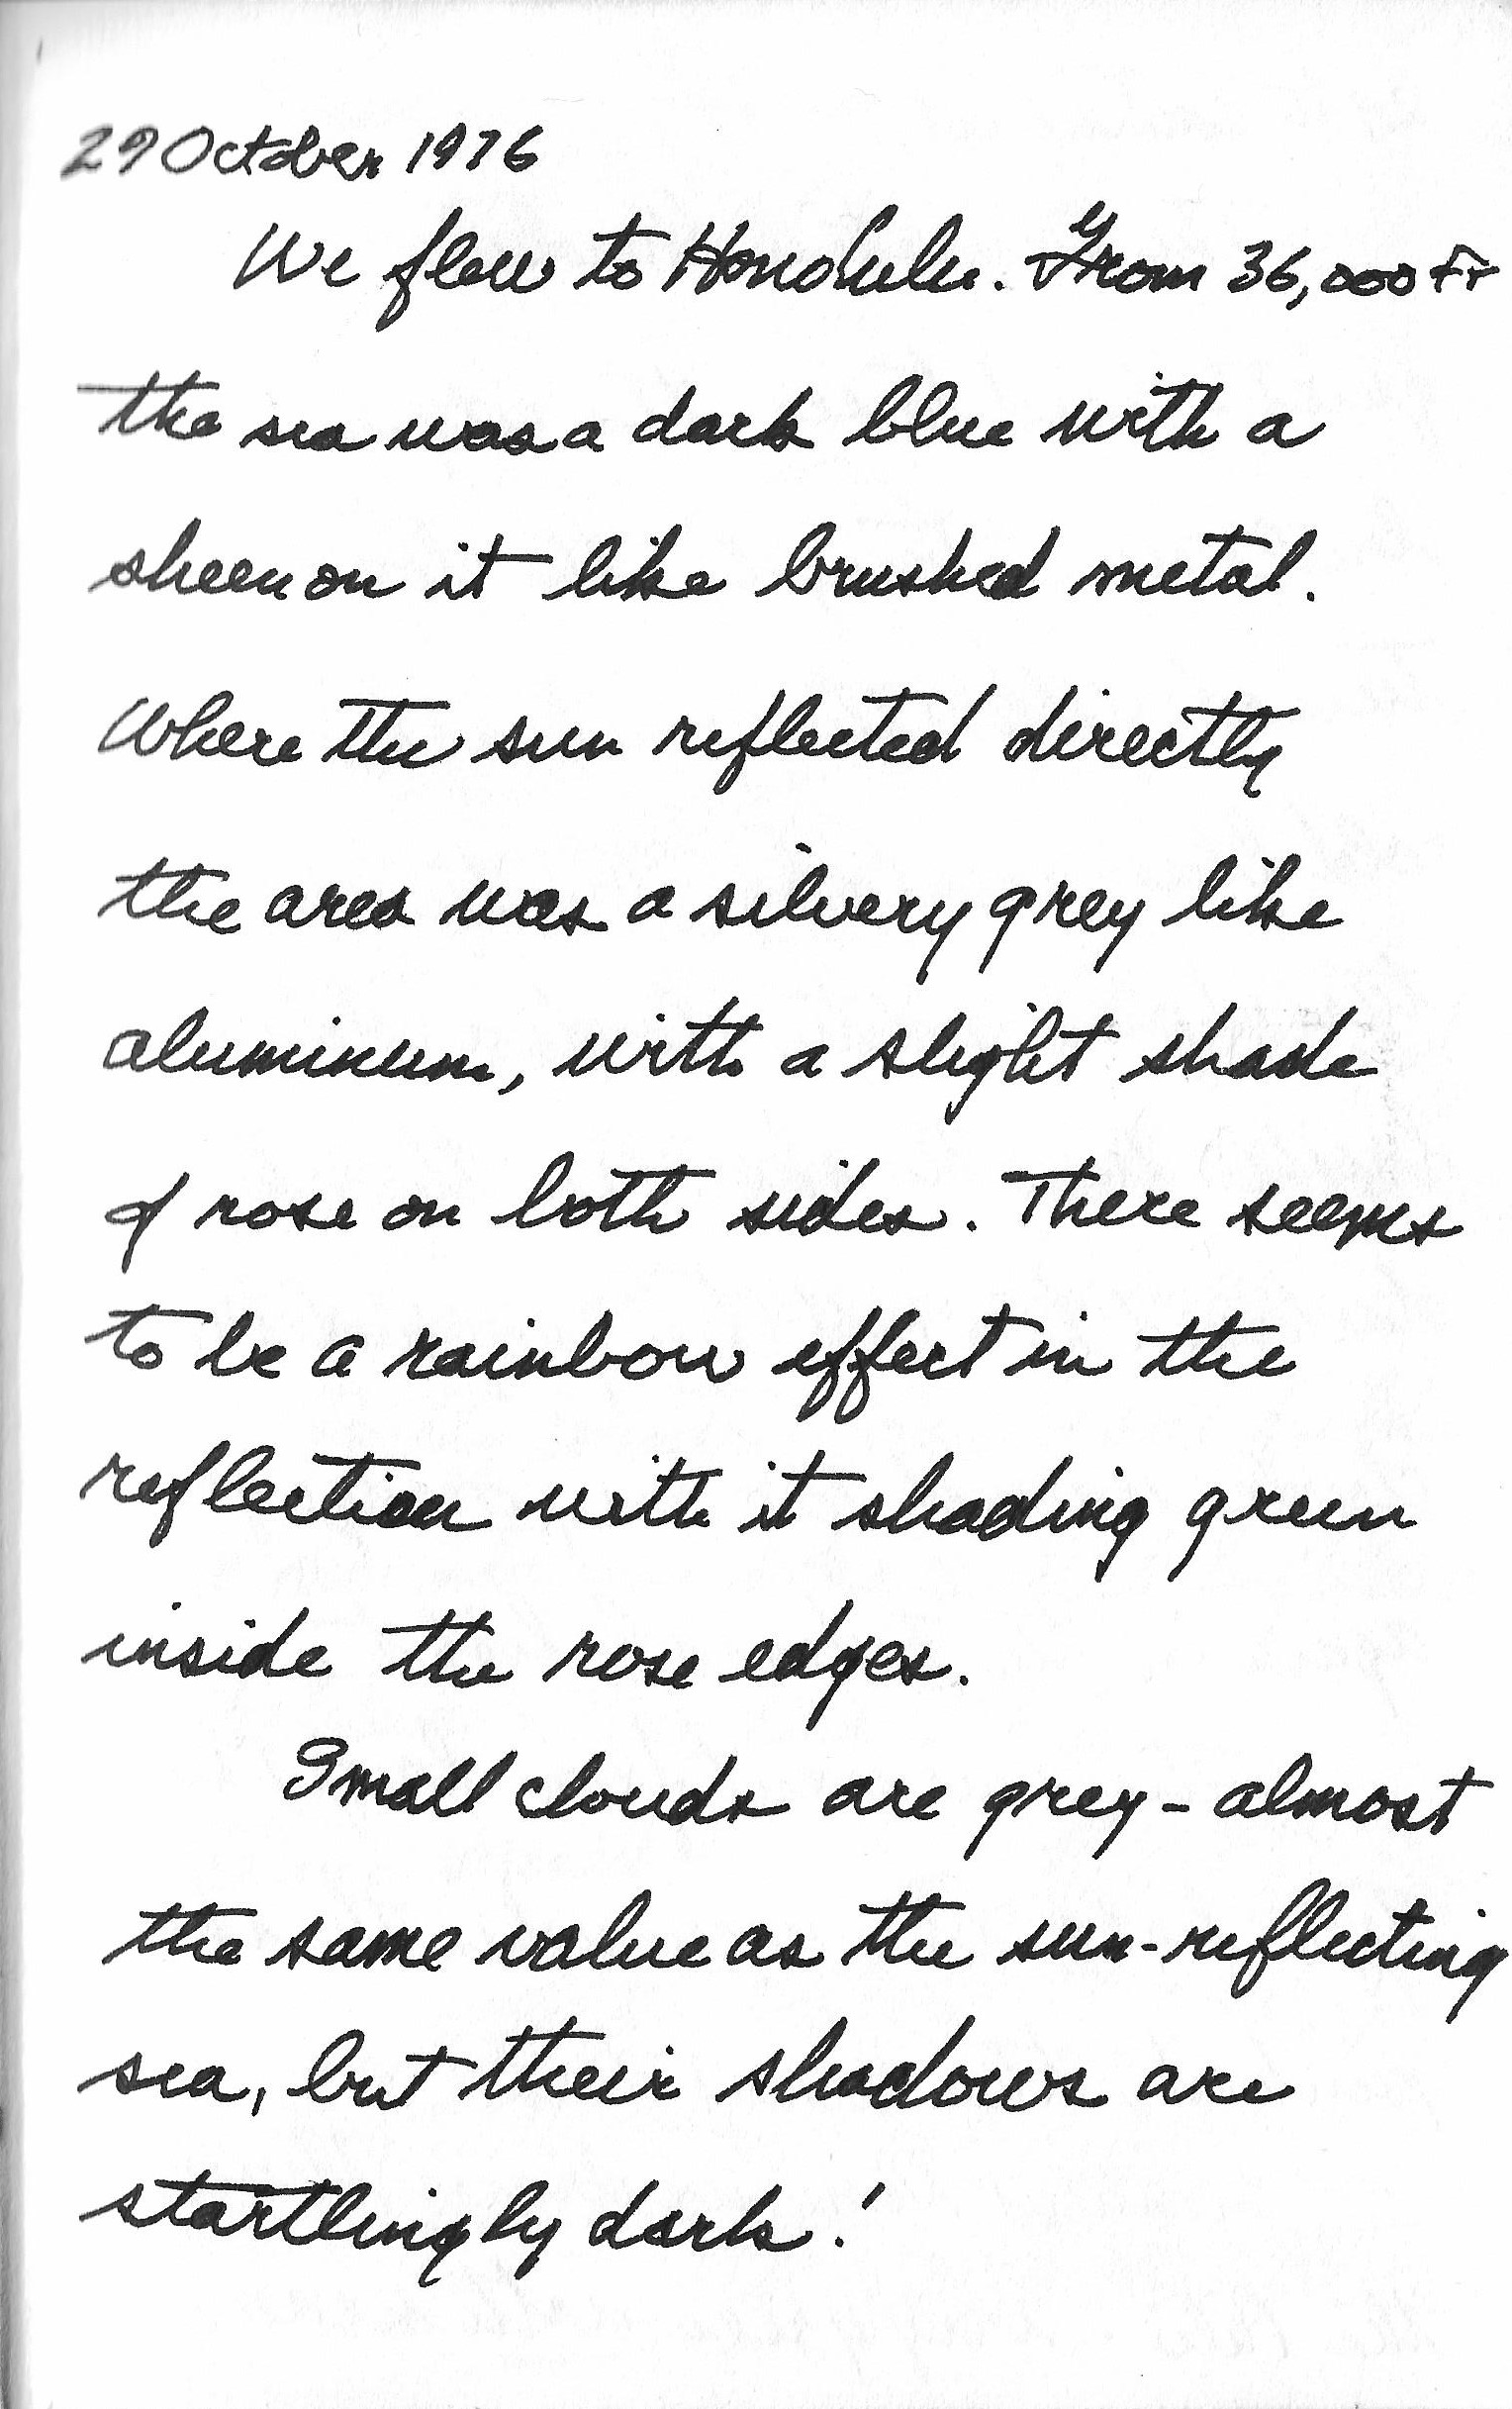 29 October 1976
We flew to Honolulu. From 36,000 FT
the sea was a dark blue with a
sheen on it like brushed metal.
Where the sun reflected directly
the area was a silvery grey like
aluminum, with a slight shade
of rose on both sides. There seems
to be a rainbow effect in the
reflection with it shading green
inside the rose edges.
Small clouds are grey - almost
the same value as the sun-reflecting
sea, but their shadows are
startlingly dark!